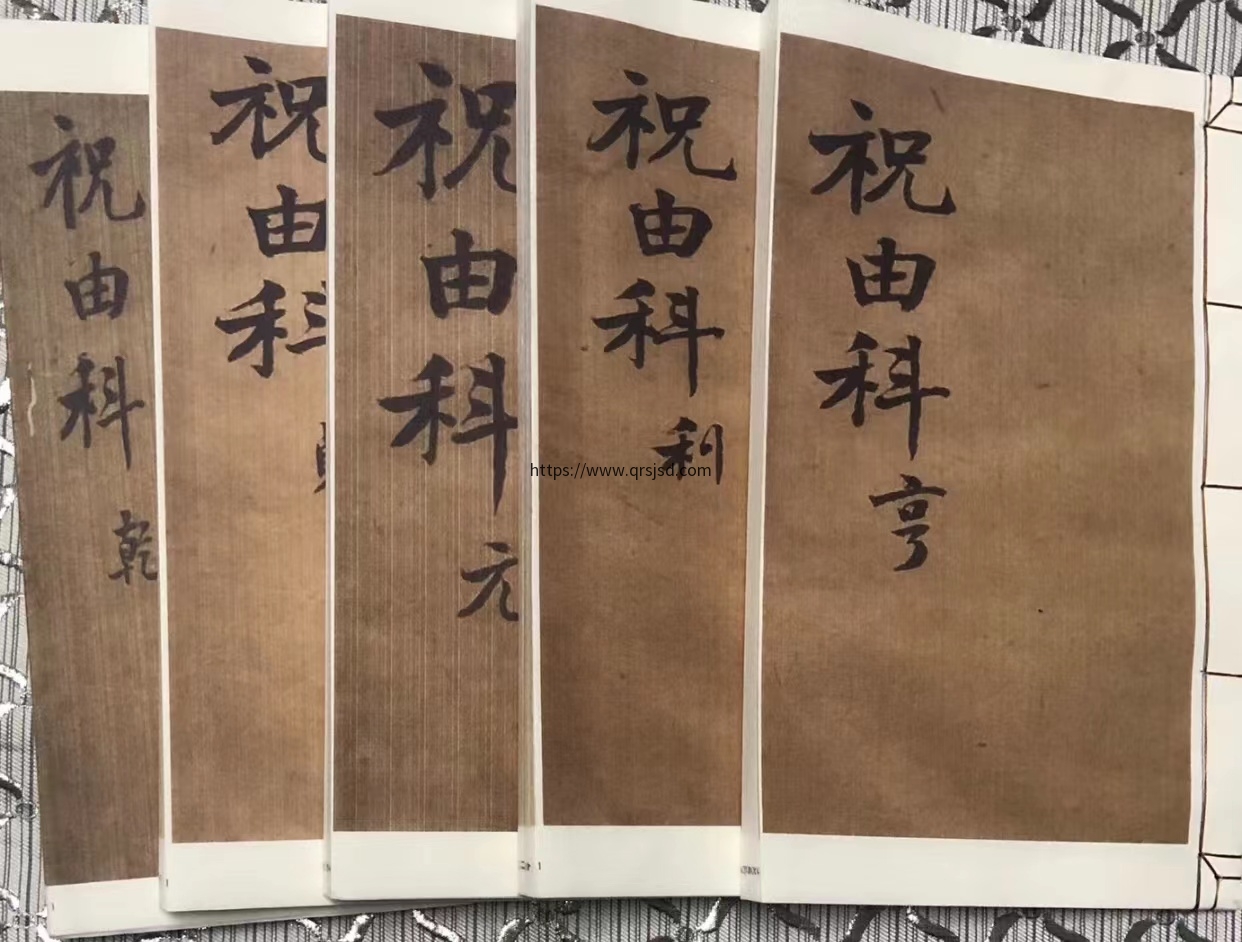 祝由科 乾
祝由科
祝由科 元
祝由科 利
祝由科 亨
https://www.qrsjsd.com